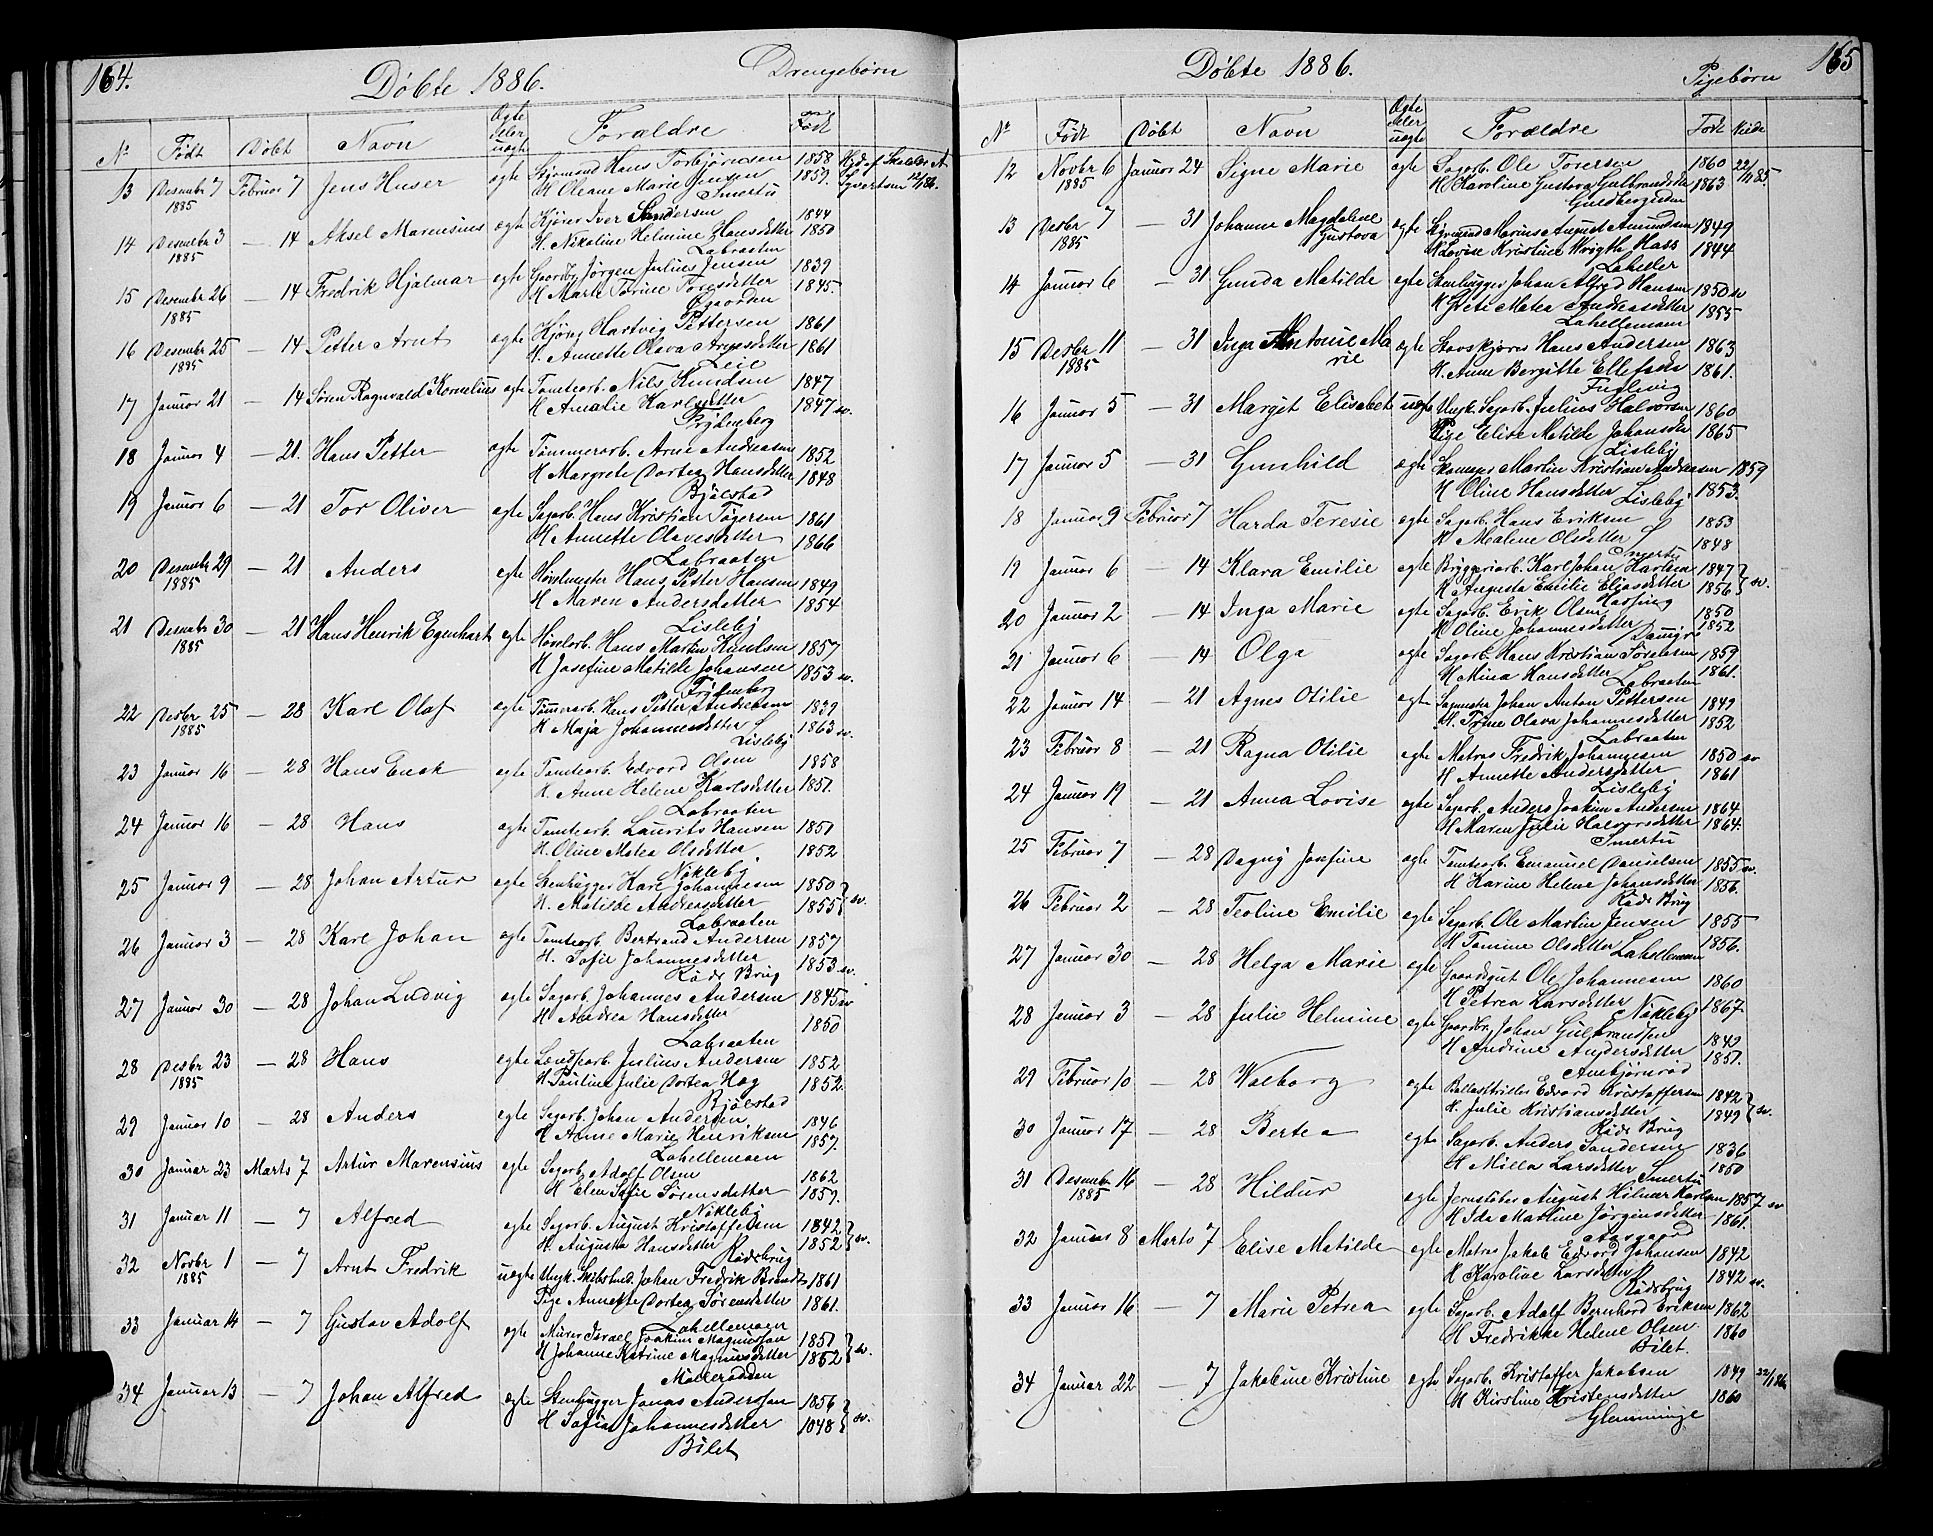 164.
Döbte 1886.
Drengebörn
No Födt Döbt Navn Ægte eller uægte Forældre Födt
13 Desembr 7 1885 Februar 7 Jens Huser ægte Styrmand Hans Torbjörnsen 1858 Hjd. af
H Oleane Marie Jensen 1859.
Smertu
14 Desembr 3 1885 — 14 Aksel Marensius ægte Kjörer Iver Sandersen 1844
H. Nikoline Helmine Hansdatter 1850
Labraaten
15 Desembr 26 1885 — 14 Fredrik Hjalmar ægte Gaardbr. Jörgen Julius Jensen 1839
H Marte Torine Toresdatter 1845.
Ögaarden
16 Desembr 25 1885 — 14 Petter Arnt ægte Kjöreg Hartvig Pettersen 1861
H. Annette Olava Arnesdatter 1861
Leie
17 Januar 21 — 14 Sören Ragnvald Kornelius ægte Tomtearb. Nils Knudsen 1847
H Amalie Karlsdatter 1847 sv.
Frydenberg
18 Januar 4 — 21. Hans Petter ægte Tömmerarb. Arne Andreasen 1852
H Margrete Dortea Hansdatter 1848
Bjölstad
19 Januar 6 — 21 Tor Oliver ægte Sagarb. Hans Kristian Togersen 1861
H Annette Olavesdatter 1866
Labraaten
20 Desembr 29 1885 — 21 Anders ægte Hövelmester Hans Petter Hansen 1849
H Maren Andersdatter 1854
Lisleby
21 Desembr 30 1885 — 21 Hans Henrik Egenhart ægte Hövlarb. Hans Martin Knudsen 1857
H Josefine Matilde Johansen 1853 sv.
Frydenberg
22 Desbr 25 1885 — 28 Karl Olaf ægte Tömmerarb. Hans Petter Andreasen 1839
H Maja Johannesdatter 1863 sv.
Lisleby
23 Januar 16 — 28 Hans Enok ægte Tomtearb. Edvard Olsen 1858
H. Anne Helene Karlsdatter 1851.
Labraaten
24 Januar 16 — 28 Hans ægte Tomtearb. Laurits Hansen 1851
H. Oline Matea Olsdatter 1852
Nökleby
25 Januar 9 — 28 Johan Artur ægte Stenhugger Karl Johannesen 1850
H. Matilde Andreasdatter 1855 sv.
Labraaten
26 Januar 3 — 28 Karl Johan ægte Tomtearb. Bertrand Andersen 1857
H. Sofie Johannesdatter 1853 sv.
Röds Brug
27 Januar 30 — 28 Johan Ludvig ægte Sagarb. Johannes Andersen 1845 sv
H Andrea Hansdatter 1850
Labraaten
28 Desbr 23 1885 — 28 Hans ægte Landsarb. Julius Andersen 1852
H Pauline Julie Dortea Hog 1852.
Bjölstad
29 Januar 10 — 28 Anders ægte Sagarb. Johan Andersen 1846
H Anne Marie Henriksen 1857.
Lahellemoen
30 Januar 23 Marts 7 Artur Marensius ægte Sagarb. Adolf Olsen 1862
H Elen Sofie Sörensdatter 1859.
Nökleby
31 Januar 11 — 7 Alfred ægte Sagarb. August Kristoffersen 1842
H. Augusta Hansdatter 1852 sv.
Rödsbrug
32 Novbr 1 1885 — 7 Arnt Fredrik uægte Ungk. Skibstmd. Johan Fredrik Brandt 1861
Pige Annette Dortea Sörensdatter 1861.
Lahellemoen
33 Januar 14 — 7 Gustav Adolf ægte Murer Israel Joakim Magnussen 1851
H Johanne Katrine Magnusdatter 1852 sv.
Mollerodden
34 Januar 13 — 7 Johan Alfred ægte Stenhugger Jonas Anderssen 1856
H Sofia Johannesdatter 1848 sv.
Bilet
Döbte 1886.
Pigebörn
165
No Födt Döbt Navn Ægte eller uægte Forældre Födt
12 Novbr 6 1885 Januar 24 Signe Marie ægte Sagarb. Ole Toresen 1860 22/11 85.
H Karoline Gustava Gulbrandsdtr 1863
13 Desbr 7 1885 — 31 Johanne Magdalene Gustava ægte Styrmand Marius August Amundsen 1849
H Lovise Kristine Wrigth Hass 1844
Laheller
14 Januar 6 — 31 Gunda Matilde ægte Stenhugger Johan Alfred Hansen 1850 sv
H Grete Matea Andreasdatter 1855
Lahellemoen
15 Desbr 11 1885 — 31 Inga Antonie Marie ægte Stavskjörer Hans Andersen 1863
H. Anne Bergitte Ellefsdtr 1861.
Fuglevig
16 Januar 5 — 31 Marget Elisabet uægte Ungk. Sagarb. Julius Halvorsen 1860
Pige Elise Matilde Johansdtr 1865
Lisleby
17 Januar 5 — 31 Gunhild ægte Skomager Martin Kristian Andreasen 1859
H Oline Hansdatter 1853.
Lisleby
18 Januar 9 Februar 7 Harda Teresie ægte Sagarb. Hans Eriksen 1853
H Maline Olsdatter 1848
Smertu
19 Januar 6 — 14 Klara Emilie ægte Bryggeriarb. Karl Johan Karlsen 1847
H Augusta Emilie Eliasdatter 1856 sv.
20 Januar 2 — 14 Inga Marie ægte Sagarb. Erik Olsen 1850
H Oline Johannesdatter 1852
21 Januar 6 — 14 Olga ægte Sagarb. Hans Kristian Sörensen 1859
H Mina Hansdatter 1861.
Labraaten
22 Januar 14 — 21 Agnes Otilie ægte Sagmester Johan Anton Pettersen 1849
H. Trine Olava Johannesdatter 1852
Labraaten
23 Februar 8 — 21 Ragna Otilie ægte Matros Fredrik Johannesen 1850 sv
H Annette Andersdatter 1861
Lisleby
24 Januar 19 — 21 Anna Lovise ægte Sagarb. Anders Joakim Andersen 1864
H Maren Julie Halvorsdatter 1864.
Smertu
25 Februar 7 — 28 Dagny Josfine ægte Tomtearb. Emanuel Danielsen 1855 sv.
H Karine Helene Johansdatter 1856.
Röds Brug
26 Februar 2 — 28 Teoline Emilie ægte Sagarb. Ole Martin Jensen 1855
H Tomine Olsdatter 1856.
Lahellemoen
27 Januar 30 — 28 Helga Marie ægte Gaardsgut Ole Johannesen 1860
H Petrea Larsdatter 1867.
Nökleby
28 Januar 3 — 28 Julie Helmine ægte Gaardbr. Johan Gulbrandsen 1849
H Andrine Andersdatter 1851.
Ambjörnröd
29 Februar 10 — 28 Walborg ægte Ballasttriller Edvard Kristoffersen 1842
H. Julie Kristiansdatter 1849 sv.
Röds Brug
30 Januar 17 — 28 Bertea ægte Sagarb. Anders Sandersen 1836
H Milla Larsdatter 1850
Smertu
31 Desembr 16 1885 — 28 Hildur ægte Jernstöber August Hilmar Karlsen 1857 sv
H Ida Martine Jörgensdatter 1861.
Aasgaard
32 Januar 8 Marts 7 Elise Matilde ægte Matros Jakob Edvard Johansen 1842
H Karoline Larsdatter 1842 sv.
Rödsbrug
33 Januar 16 — 7 Marie Petrea ægte Sagarb. Adolf Bernhard Eriksen 1862
H Fredrikke Helene Olsen 1860
Bilet.
34 Januar 22 — 7 Jakobine Kristine ægte Sagarb. Kristoffer Jakobsen 1849
H Kirstine Kristensdatter 1860
Glemminge